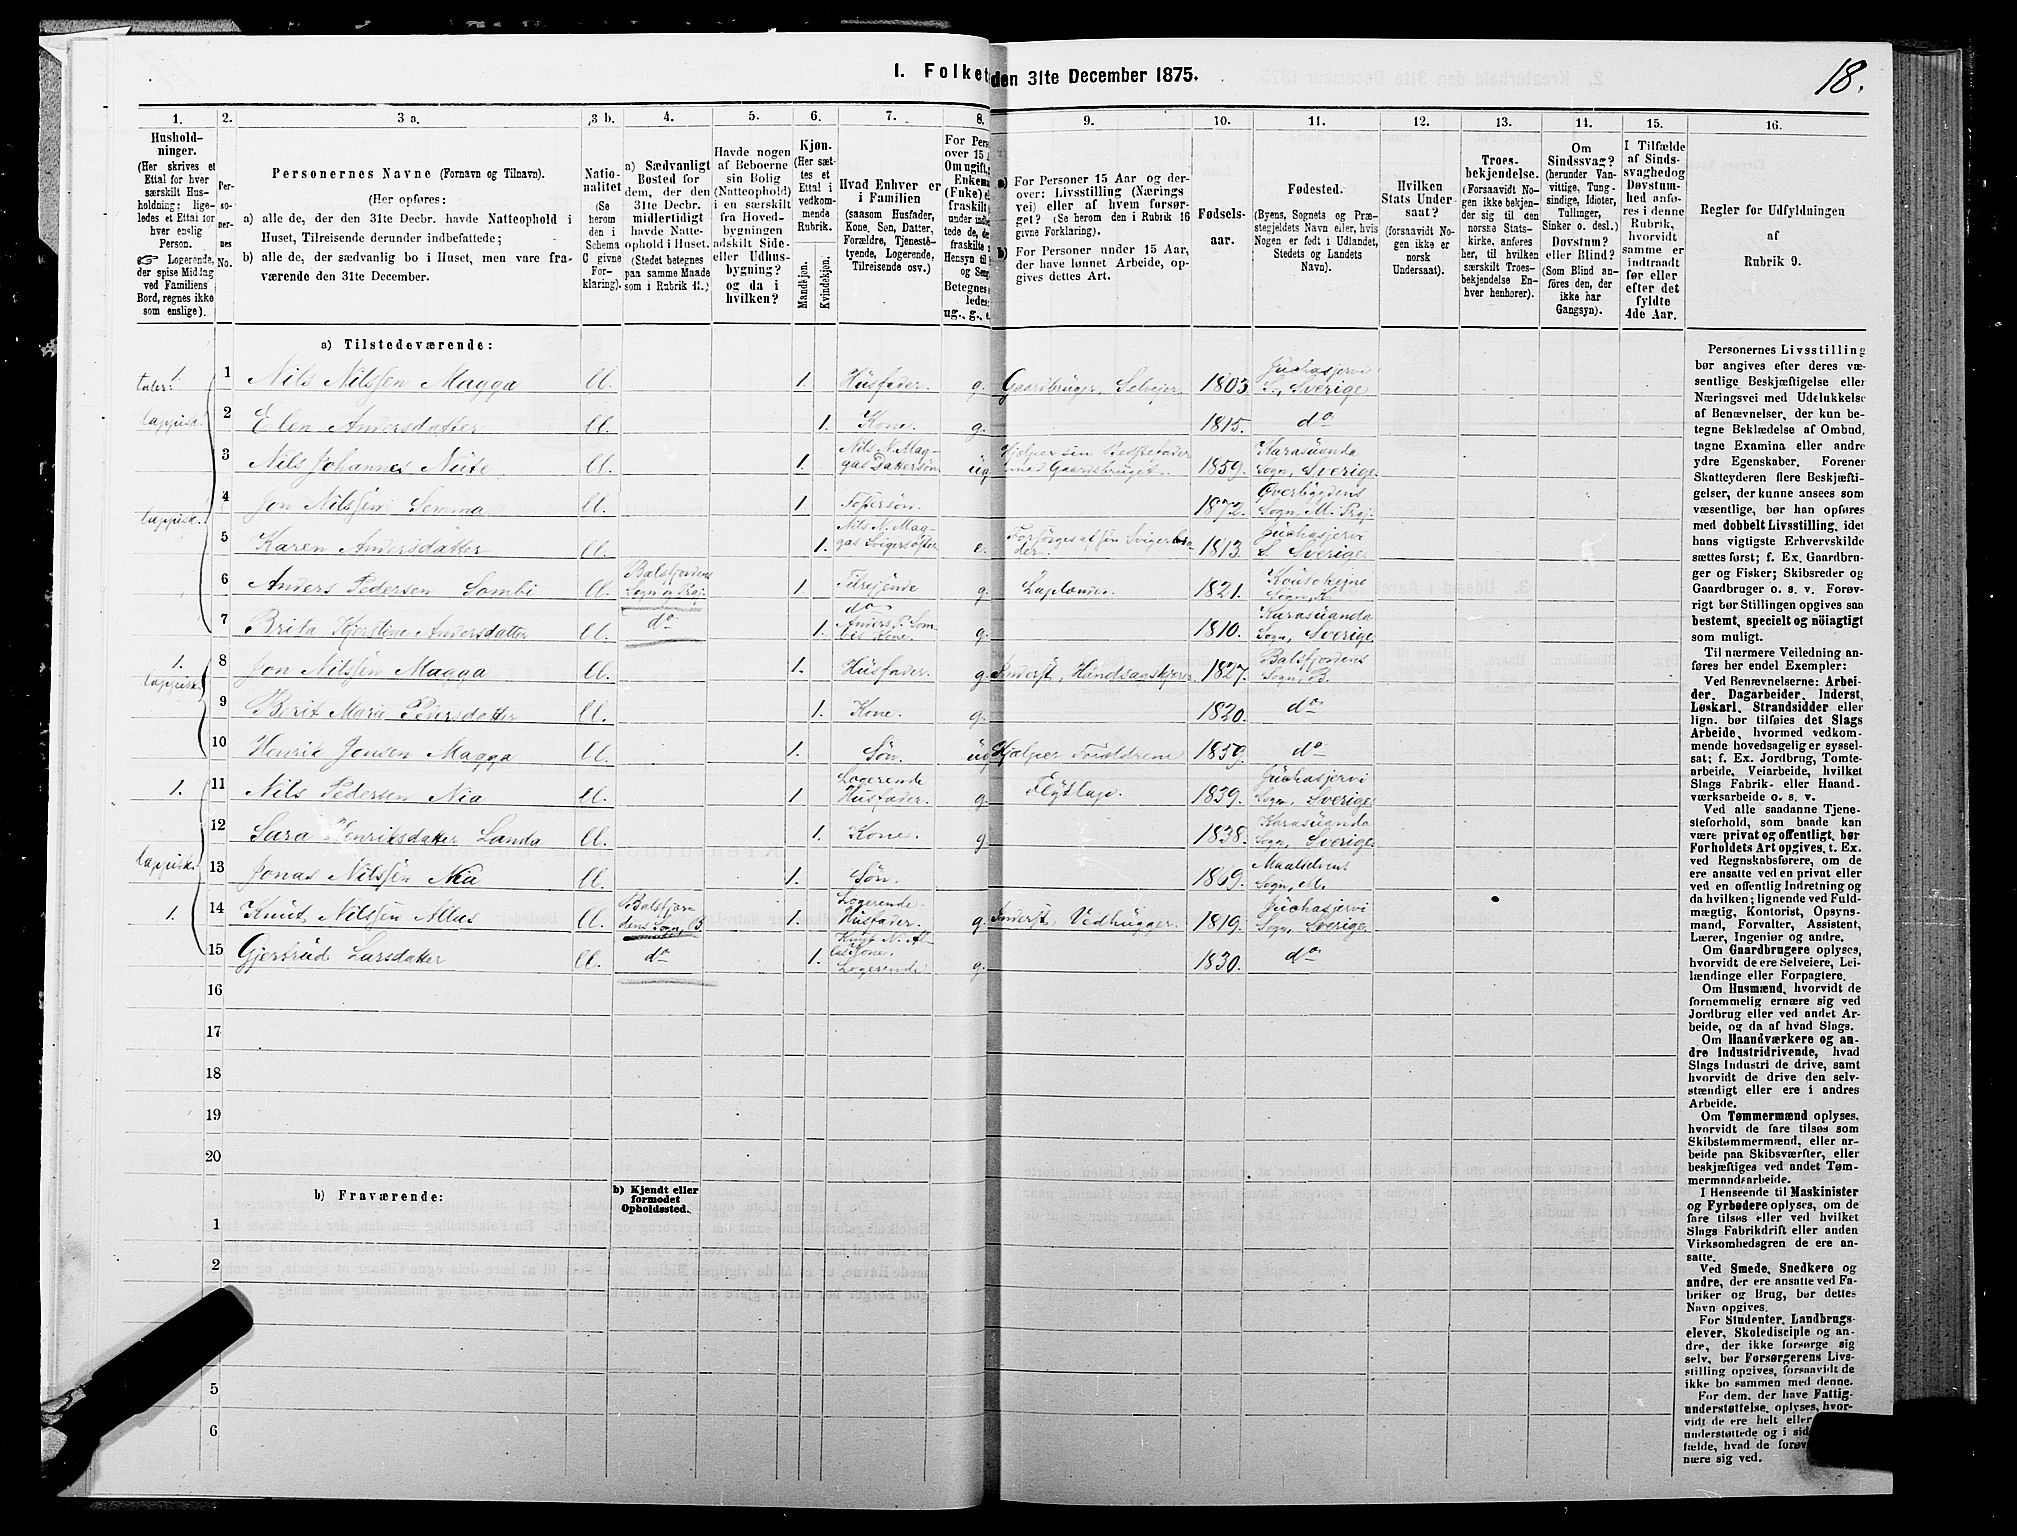 I. Folket
den 31te December 1875.
18.
1.
Hushold-
ninger.
(Her skrives et
Ettal for hver
særskilt Hus-
holdning; lige-
ledes et Ettal for
hver enslig
Person.
☞ Logerende,
der spise Middag
ved Familiens
Bord, regnes ikke
som enslige).
2.
Per-
so-
ner-
nes
No.
3 a.
Personernes Navne (Fornavn og Tilnavn).
(Her opføres:
a) alle de, der den 31te Decbr. havde Natteophold i
Huset, Tilreisende derunder indbefattede;
b) alle de, der sædvanlig bo i Huset, men vare fra-
værende den 31te December.
3 b.
Natio-
nalitet
(Se
herom
den i
Schema
C givne
For-
klaring).
4.
a) Sædvanligt
Bosted for
dem, der den
31te Decbr.
midlertidigt
havde Natte-
ophold i Huset.
(Stedet betegnes
paa samme Maade
som i Rubrik 11.)
5.
Havde nogen
af Beboerne
sin Bolig
(Natteophold)
i en særskilt
fra Hoved-
bygningen
adskilt Side-
eller Udhus-
bygning?
og da i
hvilken?
6.
Kjøn.
(Her sæt-
tes et
Ettal i
vedkom-
mende
Rubrik.
Mandkjøn.
Kvindekjøn.
7.
Hvad Enhver er
i Familien
(saasom Husfader,
Kone, Søn, Datter,
Forældre, Tjeneste-
tyende, Logerende,
Tilreisende osv.)
8.
For Pers
over 15 A
Om ugift,
Enkema
(Fuke)
fraskilt
under indbe
tede de,
fraskilte
Hensyn til
og Seng
Betegnes
ledes:
ug., g., e.
9.
a) For Personer 15 Aar og der-
over: Livsstilling (Nærings
vei) eller af hvem forsør-
get? (Se herom den i Rubrik 16
givne Forklaring).
b) For Personer under 15 Aar,
der have lønnet Arbeide, op-
gives dettes Art.
10.
Fødsels-
aar.
11.
Fødested.
(Byens, Sognets og Præ-
stegjeldets Navn eller, hvis
Nogen er født i Udlandet,
Stedets og Landets
Navn).
12.
Hvilken
Stats Under-
saat?
(forsaavidt No-
gen ikke er
norsk
Undersaat).
13.
Troes-
bekjendelse.
(Forsaavidt No-
gen ikke bekjen-
der sig til den
norske Stats-
kirke, anføres
her, til hvilken
særskilt Troes-
bekjendelse En-
hver henhører).
14.
Om
Sindssvag?
(herunder Van-
vittige, Tung-
sindige, Idioter,
Tullinger,
Sinker o. desl.)
Døvstum?
eller Blind?
(Som Blind an-
føres den, der
ikke har
Gangsyn).
15.
I Tilfælde
af Sinds-
svaghed og
Døvstum-
hed anfø-
res i denne
Rubrik,
hvorvidt
samme er
indtraadt
før eller
efter det
fyldte
4de Aar.
16.
Regler for Udfyldningen
af
Rubrik 9.
a) Tilstedeværende:
1. 1 Nils Nilssen Magga 1. Husfader. g. Gaardbruger, Selvejer. 1803. Juchasjervi S., Sverige
lappisk. 2 Elen Andersdatter 1. Kone. g. 1815. do
3 Nils Johannes Nute 1. Nils N. Mag- gas Dattersøn ug Hjelper sin Bedstefader med Gaardsbruget. 1859. Karasuanda Sogn, Sverige
lappisk. 4 Jon Nilssen Somma 1. 1872. Øverbygdens Sogn, M. Præj.
5 Karen Andersdatter 1. Nils N. Mag- gas Svigersøster e. Forsørges af sin Svigerbro- der. 1813. Juchasjervi S. Sverige
6 Anders Pedersen Sombi Balsfjordens Sogn og Præj. 1. Tilrejsende g. 1821. Koutokejne Sogn, K.
7 Brita Kjerstine Andersdatter do 1. do Anders P. Som- bis Kone. g. 1810. Karasuanda Sogn, Sverige
1. 8 Jon Nilssen Magga 1. Husfader. g. Inderst, 1827. Balsfjordens Sogn, B.
lappisk. 9 Berit Marie Pedersdatter 1. Kone. g. 1820. do
10 Henrik Jonsen Magga 1. Søn. ug Hjelper Forældrene 1859. do
1. 11 Nils Pedersen Nia 1. Logerende Husfader. g. Flytlap. 1839. Juchasjervi Sogn, Sverige
12 Sara Henriksdatter Landa 1. Kone. g. 1838. Karasuanda Sogn, Sverige
lappisk. 13 Jonas Nilssen Nia 1. Søn. 1869. Maalselvens Sogn, M.
1. 14 Knut Nilssen Allas Balsfjor- dens Sogn, B. 1. Logerende Husfader. g. Inderst, Vedhugger. 1819. Juchasjervi Sogn, Sverige
15 Gjertrud Larsdatter do 1. Knut N. Al- las Kone. Logerende g. 1830. do
16
17
18
19
20
b) Fraværende:
b) Kjendt eller
formodet
Opholdssted.
1
2
5
6
Personernes Livsstilling
bør angives efter deres væ-
sentlige Beskjæftigelse eller
Næringsvei med Udelukkelse
af Benævnelser, der kun be-
tegne Beklædelse af Ombud,
tagne Examina eller andre
ydre Egenskaber. Forener
Skatteyderen flere Beskjæfti-
gelser, der kunne ansees som
væsentlige, bør han opføres
med dobbelt Livsstilling, idet
hans vigtigste Erhvervskilde
sættes først; f. Ex. Gaardbru-
ger og Fisker; Skibsreder og
Gaardbruger o. s. v. Forøv-
rigt bør Stillingen opgives saa
bestemt, specielt og nöiagtigt
som muligt.
Til nærmere Veiledning an-
føres her endel Exempler:
Ved Benævnelserne: Arbei-
der, Dagarbeider, Inderst,
Løskarl, Strandsidder eller
lign. bør tilføies det Slags
Arbeide, hvormed vedkom-
mende hovedsagelig er syssel-
sat; f. Ex. Jordbrug, Tomte-
arbeide, Veiarbeide, hvilket
Slags Fabrik- eller Haand-
værksarbeide o. s. v.
Ved alle saadanne Tjene-
steforhold, som baade kan
være privat og offentligt, bør
Forholdets Art opgives, t. Ex.
ved Regnskabsførere, om de
ere ansatte ved en privat eller
ved en offentlig Indretning og
da hvilken; lignende ved Fuld-
mægtig, Kontorist, Opsyns-
mand, Forvalter, Assistent,
Lærer, Ingeniør og andre.
Om Gaardbrugere oplyses,
hvorvidt de ere Selveiere, Lei-
lændinge eller Forpagtere.
Om Husmænd, hvorvidt de
fornemmelig ernære sig ved
Jordbrug eller ved andet Ar-
beide, og da af hvad Slags.
Om Haandværkere og an-
dre Industridrivende, hvad
Slags Industri de drive, samt
hvorvidt de drive den selv-
stændigt eller ere i andres
Arbeide.
Om Tømmermænd oplyses,
hvorvidt de fare tilsøs som
Skibstømmermænd, eller ar-
beide paa Skibsværfter, eller
beskjæftiges ved andet Tøm-
mermandsarbeide.
I Henseende til Maskinister
og Fyrbødere oplyses, om de
fare tilsøs eller ved hvilket
Slags Fabrikdrift eller anden
Virksomhedsgren de ere an-
satte.
Ved Smede, Snedkere og
andre, der ere ansatte ved Fa-
briker og Brug, bør dettes
Navn opgives.
For Studenter, Landbrugs-
elever, Skoledisciple og an-
dre, der ikke forsørge sig
selv, bør Forsørgerens Livs-
stilling opgives, forsaavidt de
ikke bo sammen med denne.
For dem, der have Fattig-
understøttelse, oplyses, hvor-
vidt de ere helt eller
understøttede og i sid
fælde, hvad de forøv
nære sig ved.